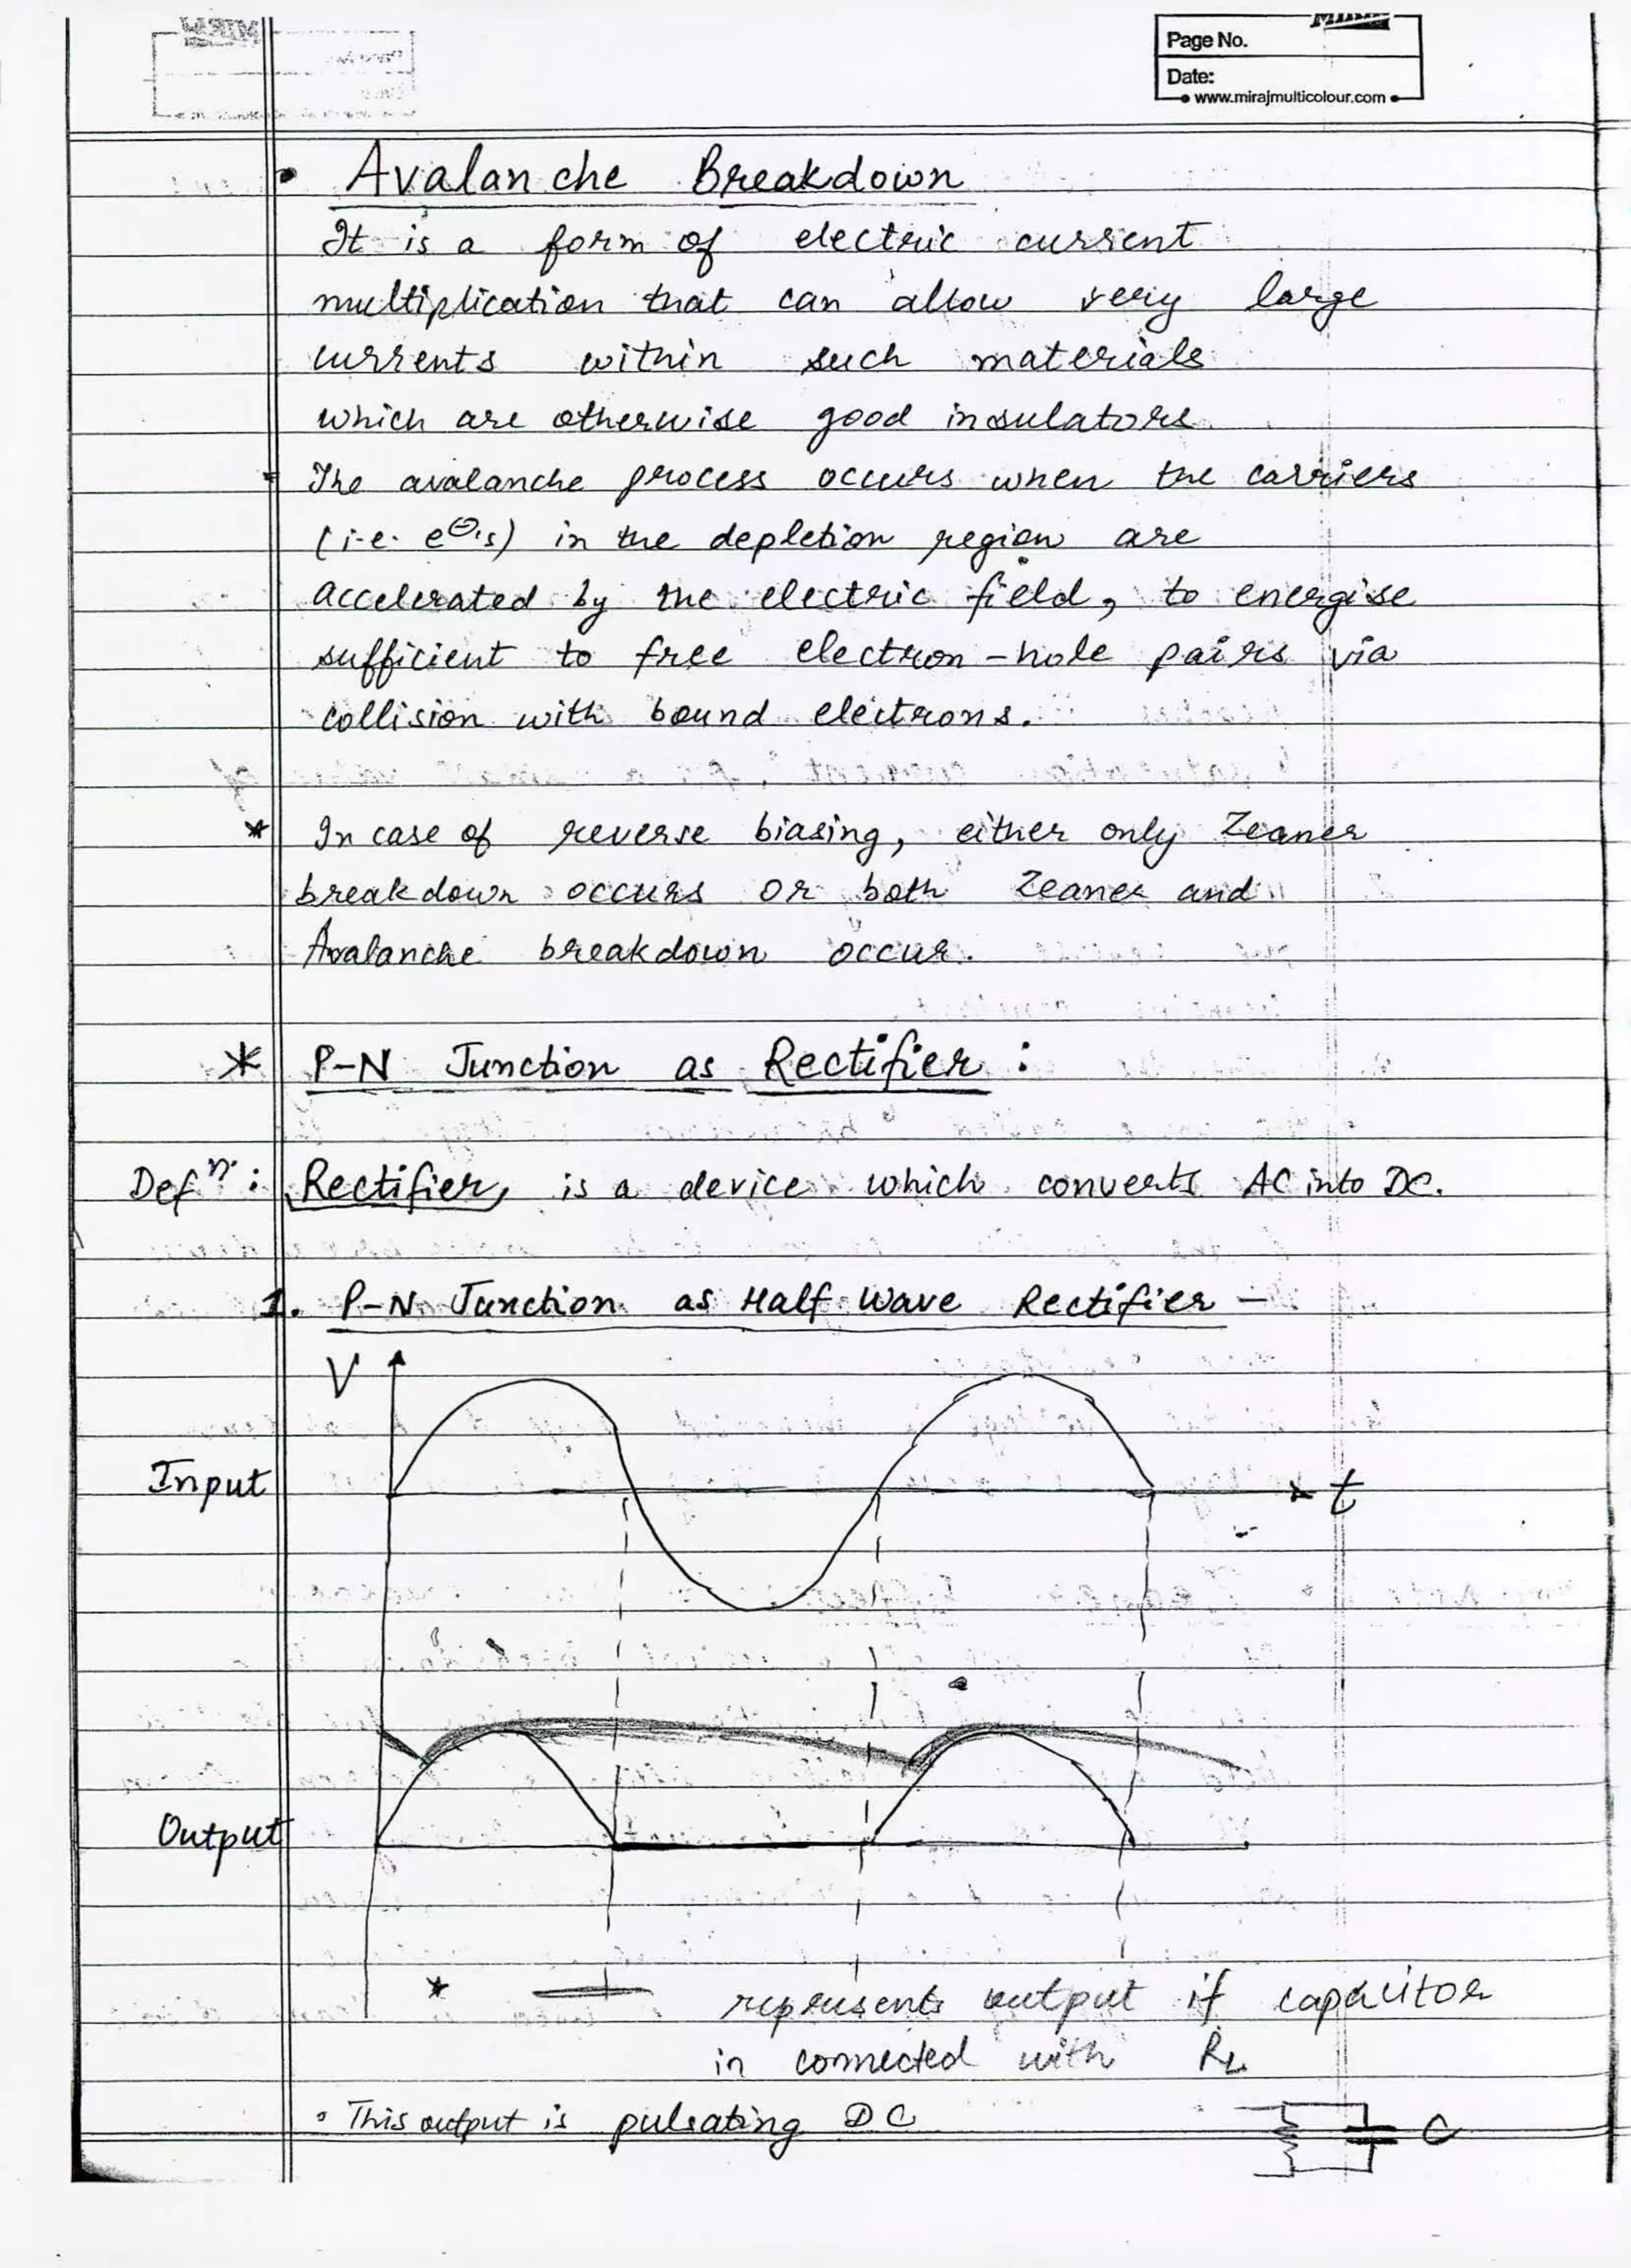 MIRAJ
Page No.
Date:
www.mirajmulticolour.com
• Avalanche Breakdown
It is a form of electric current
multiplication that can allow very large
currents within such materials
which are otherwise good insulators.
The avalanche process occurs when the carriers
(i.e. e⊖'s) in the depletion region are
accelerated by the electric field, to energise
sufficient to free electron-hole pairs via
collision with bound electrons.
* In case of reverse biasing, either only Zeaner
breakdown occurs or both Zeaner and
Avalanche breakdown occur.
* P-N Junction as Rectifier :
Defⁿ· : Rectifier, is a device which converts AC into DC.
1. P-N Junction as Half Wave Rectifier -
V
Input
t
Output
* represents output if capacitor
in connected with RL
• This output is pulsating DC
C